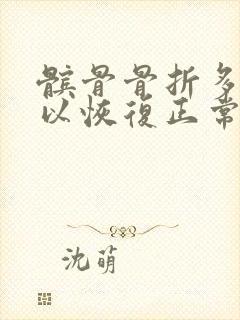 髌骨骨折多
以恢復正常
沈萌